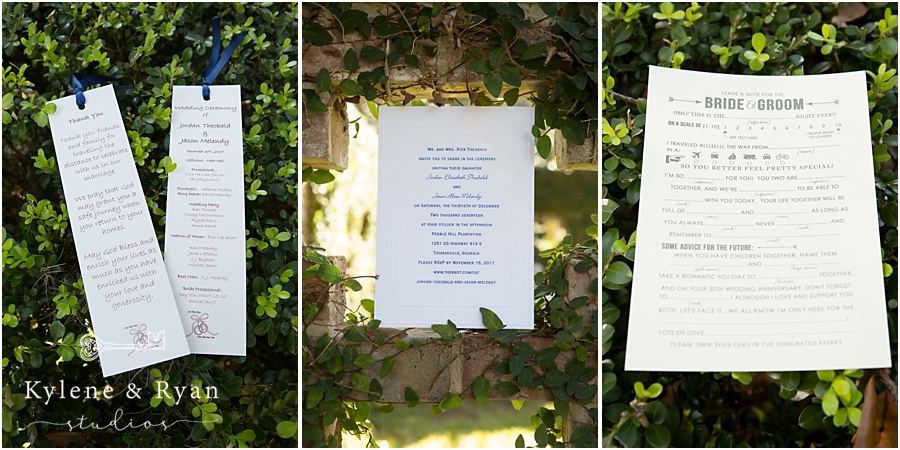 Thank You
Thank you friends
and family for
traveling the
distance to celebrate
with us in our
marriage.
We pray that God
may grant you a
safe journey when
you return to your
homes.
May God Bless and
enrich your lives as
much as you have
enriched us with
your love and
generosity.
Wedding Ceremony
of
Jordan Theobald
&
Jason Melendy
Processional:
Wedding Party
Matron of Honor:
Best Man:
Bridal Processional:
Kylene & Ryan
studios
Mr. and Mrs. Rick Theobald
invite you to share in the ceremony
uniting their daughter
Jordan Elizabeth Theobald
and
Jason Adam Melendy
on Saturday, the thirtieth of December
Two thousand seventeen
at four o'clock in the afternoon
Pebble Hill Plantation
1251 US Highway 319 S
Thomasville, Georgia
Please RSVP by November 15, 2017
www.theknot.com/us/
jordan-theobald-and-jason-melendy
LEAVE A NOTE FOR THE
BRIDE & GROOM
OMG! THIS IS THE NIGHT EVER!!
(adjective)
ON A SCALE OF (1-10) 1 2 3 4 5 6 7 8 9 10
MY FEET HURT I NEVER WANT TO LEAVE!!!
I TRAVELED ALLLLLLL THE WAY FROM
IN A:
SO YOU BETTER FEEL PRETTY SPECIAL!
I'M SO FOR YOU! YOU TWO ARE
TOGETHER, AND WE'RE TO BE ABLE TO
WITH YOU TODAY. YOUR LIFE TOGETHER WILL BE
FULL OF AND AS LONG AS
YOU ALWAYS NEVER AND
REMEMBER TO
SOME ADVICE FOR THE FUTURE:
WHEN YOU HAVE CHILDREN TOGETHER, NAME THEM
AND
TAKE A ROMANTIC HOLIDAY TO TOGETHER.
AND ON YOUR 50TH WEDDING ANNIVERSARY, DON'T FORGET
TO ! ALTHOUGH I LOVE AND SUPPORT YOU
BOTH, LET'S FACE IT... WE ALL KNOW I'M ONLY HERE FOR THE
LOTS OF LOVE
PLEASE DROP YOUR CARD IN THE DESIGNATED BASKET